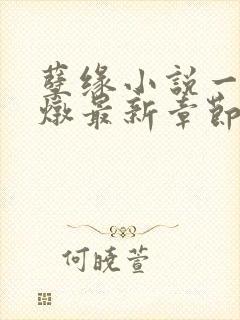 孽缘小説一
燉最新章節
何晓萱